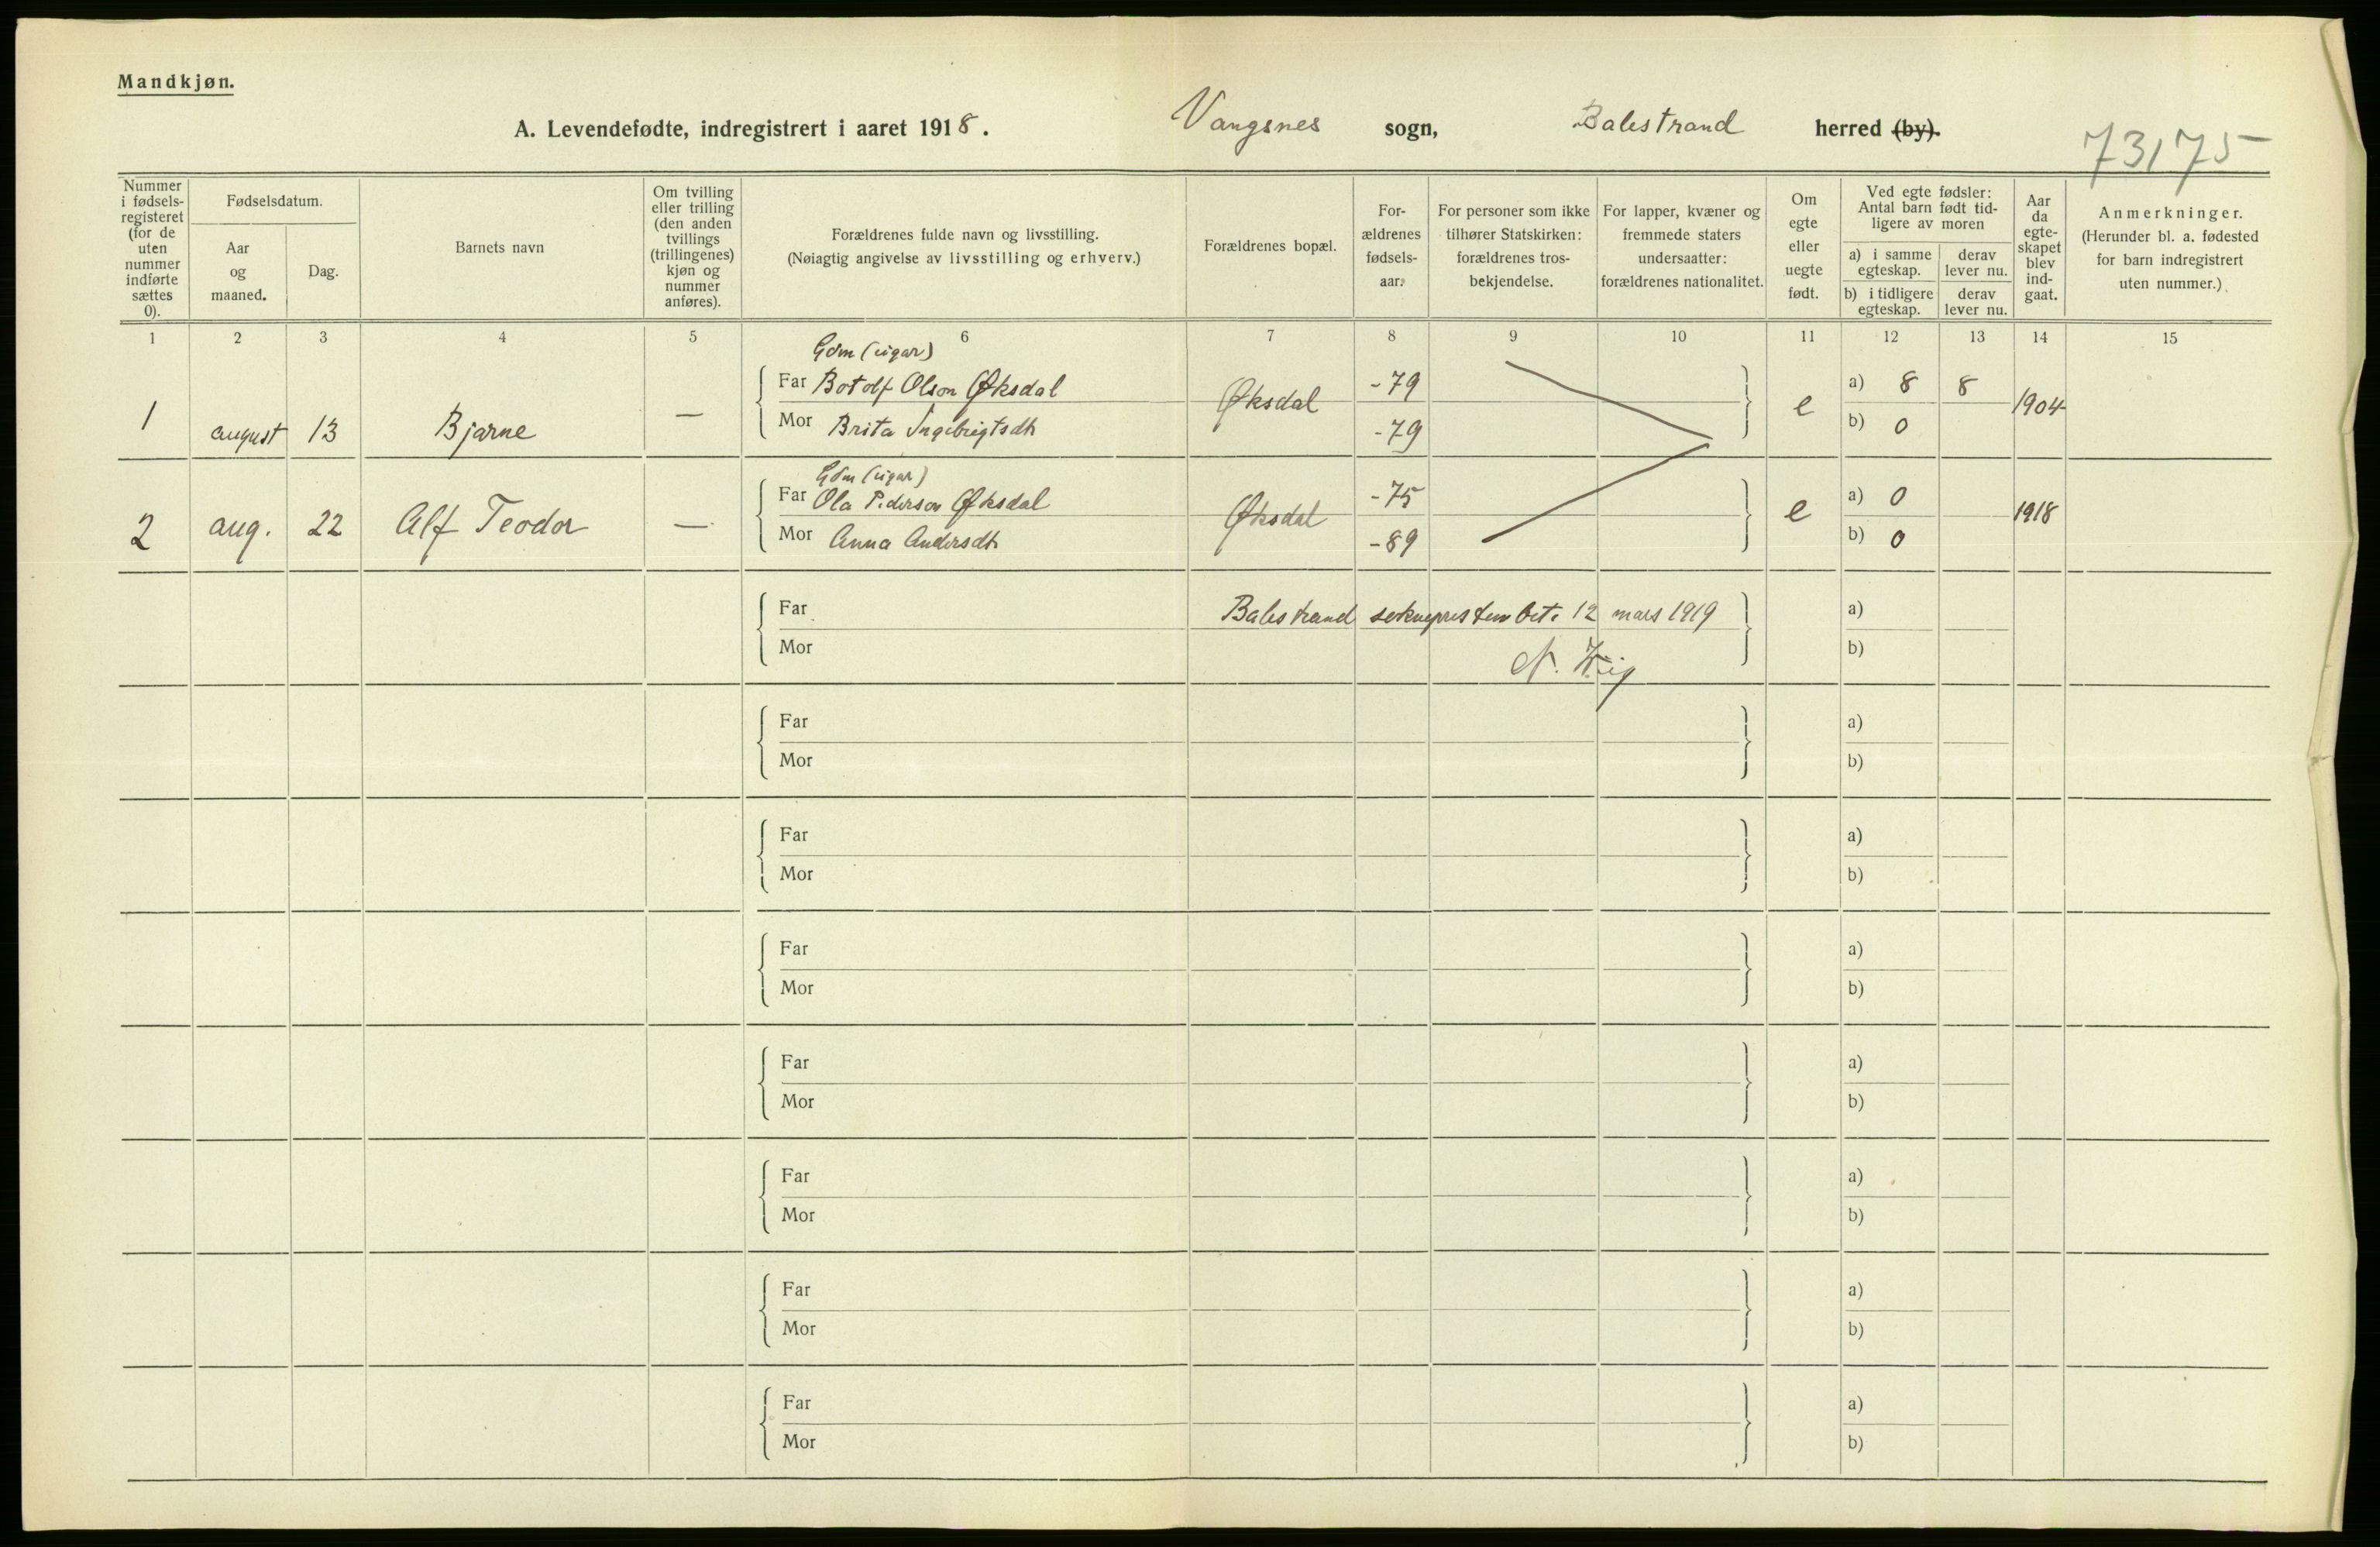 Mandkjøn.
A. Levendefødte, indregistrert i aaret 1918. Vangsnes sogn, Balestrand herred (by).
73175
Nummer i fødsels-registeret (for de uten nummer indførte sættes 0).
Fødselsdatum.
Aar og maaned.
Dag.
Barnets navn
Om tvilling eller trilling (den anden tvillings (trillingenes) kjøn og nummer anføres).
Forældrenes fulde navn og livsstilling.
(Nøiagtig angivelse av livsstilling og erhverv.)
Forældrenes bopæl.
For-ældrenes fødsels-aar.
For personer som ikke tilhører Statskirken: forældrenes tros-bekjendelse.
For lapper, kvæner og fremmede staters undersaatter: forældrenes nationalitet.
Om egte eller uegte født.
Ved egte fødsler: Antal barn født tid-ligere av moren
a) i samme egteskap.
derav lever nu.
b) i tidligere egteskap.
derav lever nu.
Aar da egte-skapet blev ind-gaat.
Anmerkninger.
(Herunder bl. a. fødested for barn indregistrert uten nummer.)
1 2 3 4 5 6 7 8 9 10 11 12 13 14 15
Gdm (eigar)
1 august 13 Bjarne — Far Botolf Olson Øksdal Øksdal -79 e a) 8 8 1904
Mor Brita Ingebrigtsdtr -79 b) 0
Gdm (eigar)
2 aug. 22 Alf Teodor — Far Ola Pederson Øksdal Øksdal -75 e a) 0 1918
Mor Anna Andersdtr -89 b) 0
Far Balestrand 12 mars 1919 a)
Mor b)
Far a)
Mor b)
Far a)
Mor b)
Far a)
Mor b)
Far a)
Mor b)
Far a)
Mor b)
Far a)
Mor b)
Far a)
Mor b)